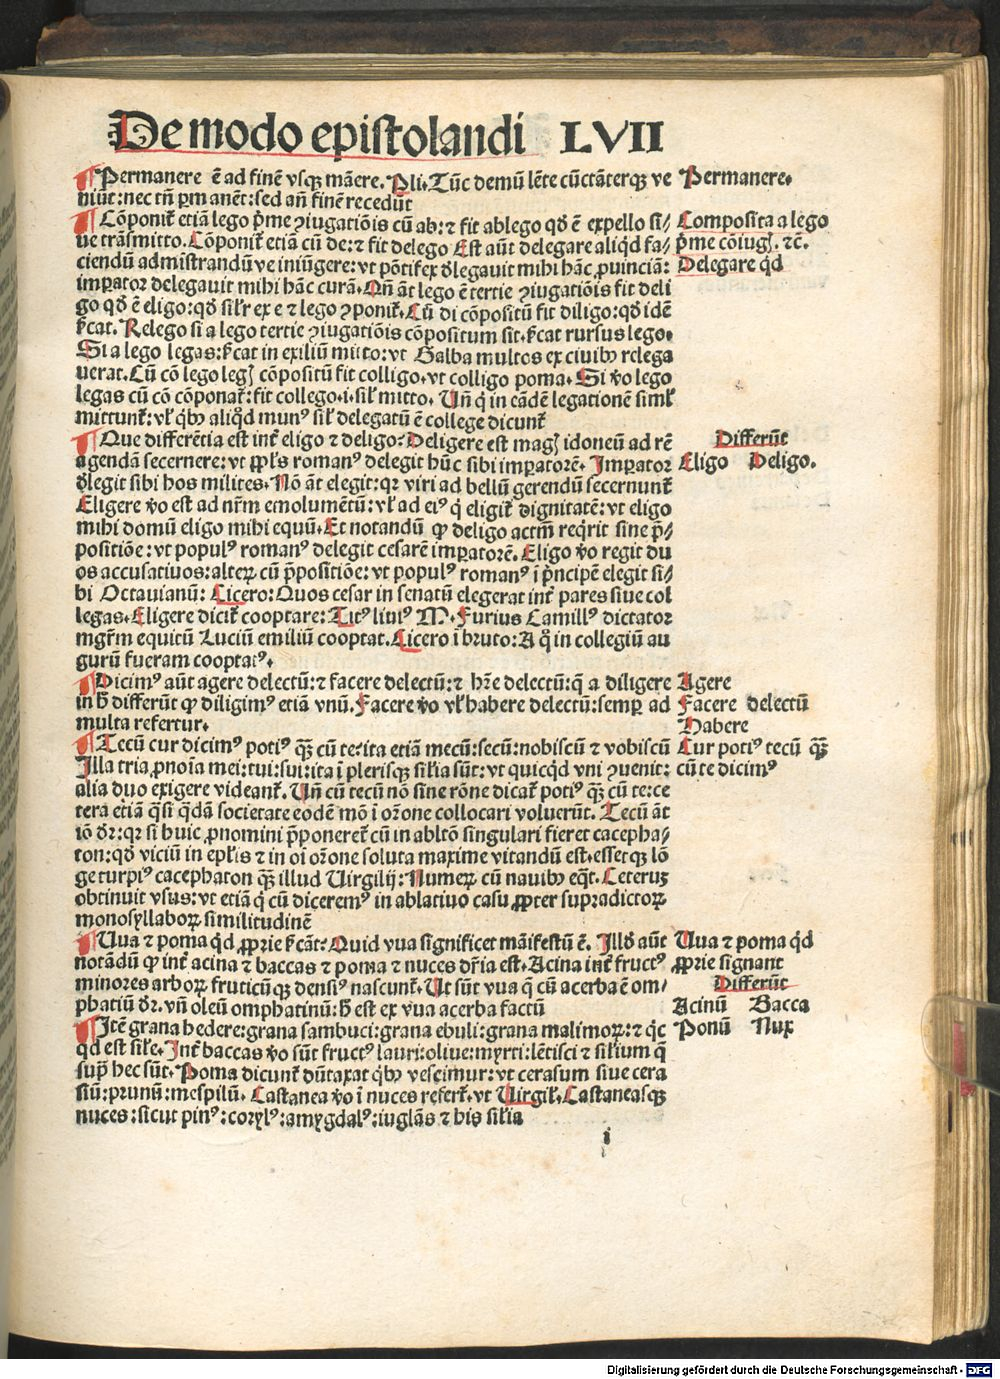 De modo epistolandi LVII
¶ Permanere ē ad finē vsqꝫ māere. Pli. Tūc demū lēte cūctāterqꝫ ve
niūt: nec tn̄ ꝑmanēt: sed an̄ finē recedūt
Permanere.
¶ Cōponit̄ etiā lego p̄me ꝯiugatiōis cū ab: ⁊ fit ablego qd̓ ē expello si/
ue trāsmitto. Cōponit̄ etiā cū de: ⁊ fit delego Est aūt delegare aliqd̓ fa/
ciendū admistrandū ve iniūgere: vt pōtifex d̓legauit mihi hāc ꝓuinciā:
imꝑator delegauit mihi hāc curā. Qn̄ āt lego ē tertie ꝯiugatiōis fit deli
go qd̓ ē eligo: qd̓ silr̄ ex e ⁊ lego ꝯponit̄. Cū di cōpositū fit diligo: qd̓ idē
ẜcat. Relego si a lego tertie ꝯiugatiōis cōpositum sit. ẜcat rursus lego.
Si a lego legas: ẜcat in exiliū mitto: vt Galba multos ex ciuibꝰ relega
uerat. Cū cō lego legꝭ cōpositū fit colligo. vt colligo poma. Si v̓o lego
legas cū cō cōponat̄: fit collego .i. sil̄ mitto. Vn̄ q̇ in eādē legationē siml̄
mittunt̄: vl̓ qͥbꝰ aliqd̓ munꝰ sil̄ delegatū ē college dicunt̄
Composita a lego
p̄me cōiugꝭ. ⁊c̄.
Delegare qd̓
¶ Que differētia est int̄ eligo ⁊ deligo? Deligere est magꝭ idoneū ad rē
agendā secernere: vt ppl̓s romanꝰ delegit hūc sibi imꝑatorē. Imꝑator
d̓legit sibi hos milites. Nō āt elegit: qꝛ viri ad bellū gerendū secernunt̄
Eligere v̓o est ad nr̄m emolumētū: vl̓ ad eiꝰ q̇ eligit̄ dignitatē: vt eligo
mihi domū eligo mihi equū. Et notandū ꝙ deligo actm̄ reqͥrit sine p̄/
positiōe: vt populꝰ romanꝰ delegit cesarē imꝑatorē. Eligo v̓o regit du
os accusatiuos: alteꝝ cū p̄positiōe: vt populꝰ romanꝰ ī pͥncipē elegit si/
bi Octauianū: Cicero: Quos cesar in senatū elegerat int̄ pares siue col
legas. Eligere dicit̄ cooptare: Titꝰ liuiꝰ M. Furius Camillꝰ dictator
mgr̄m equitū Luciū emiliū cooptat. Cicero ī bruto: A q̊ in collegiū au
gurū fueram cooptatꝰ.
Differūt
Eligo Deligo.
¶ Dicimꝰ aūt agere delectū: ⁊ facere delectū: ⁊ hr̄e delectū: q̄ a diligere
in h̓ differūt ꝙ diligimꝰ etiā vnū. Facere v̓o vl̓ habere delectū: semꝑ ad
multa refertur.
Agere
Facere delectū
Habere
¶ Tecū cur dicimꝰ potiꝰ qꝫ̄ cū te: ita etiā mecū: secū: nobiscū ⁊ vobiscū
Illa tria ꝓnoīa mei: tui: sui: ita ī plerisqꝫ sil̓ia sūt: vt quicqd̓ vni ꝯuenit:
alia duo exigere videant̄. Vn̄ cū tecū nō sine rōne dicat̄ potiꝰ qꝫ̄ cū te: ce
tera etiā q̄si qͣdā societate eodē mō ī oīone collocari voluerūt. Tecū āt
iō d̓r: qꝛ si huic ꝓnomini p̄poneret̄ cū in abltō singulari fieret cacepha/
ton: qd̓ viciū in epl̓is ⁊ in oī oīone soluta maxime vitandū est. essetqꝫ lō
ge turpiꝰ cacephaton qꝫ̄ illud Uirgilij: Numeꝝ cū nauibꝰ eqͣt. Ceterꝫ
obtinuit vsus: vt etiā q̄ cū diceremꝰ in ablatiuo casu ꝓpter supradictoꝝ
monosyllaboꝝ similitudinē
Cur potiꝰ tecū qꝫ̄
cū te dicimꝰ
¶ Uua ⁊ poma qd̓ ꝓprie ẜcāt? Quid vua significet māifestū ē. Illd̓ aūt
notādū ꝙ int̄ acina ⁊ baccas ⁊ poma ⁊ nuces dr̄ia est. Acina int̄ fructꝰ
minores arboꝝ fruticūqꝫ densiꝰ nascunt̄. Ut sūt vua q̄ cū acerba ē om/
phatiū d̓r. vn̄ oleū omphatinū: h̓ est ex vua acerba factū
Uua ⁊ poma qd̓
ꝓprie signant
Differūt
Acinū Bacca
Ponū Nux
¶ Itē grana hedere: grana sambuci: grana ebuli: grana malimoꝝ: ⁊ qͥc
qd̓ est sil̓e. Int̄ baccas v̓o sūt fructꝰ lauri: oliue: myrti: lētisci ⁊ sil̓ium q̄
sup̄ hec sūt. Poma dicunt̄ dūtaxat qͥbꝰ vescimur: vt cerasum siue cera
siū: prunū: mespilū. Castanea v̓o ī nuces refert̄. vt Uirgil̓. Castaneasqꝫ
nuces: sicut pinꝰ: corylꝰ: amygdalꝰ: iuglās ⁊ his sil̓ia
i
Digitalisierung gefördert durch die Deutsche Forschungsgemeinschaft - DFG